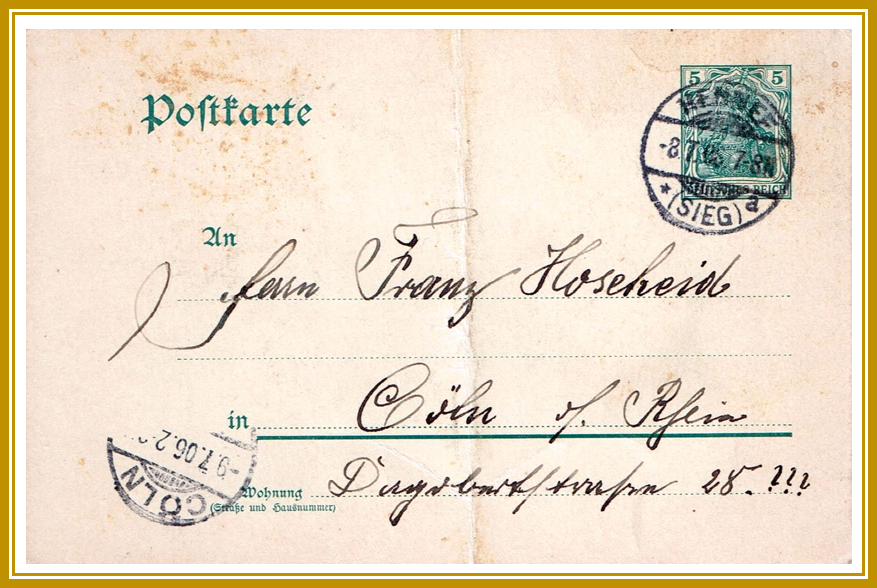 5 5
Postkarte
HENNEF
-8.7.06 7-8N
DEUTSCHES REICH
* (SIEG) a
An
Herrn Franz Hoscheid
in Cöln a/ Rhein
-9.7.06.2-
CÖLN
Wohnung Dagobertstrasse 28.???
(Straße und Hausnummer)